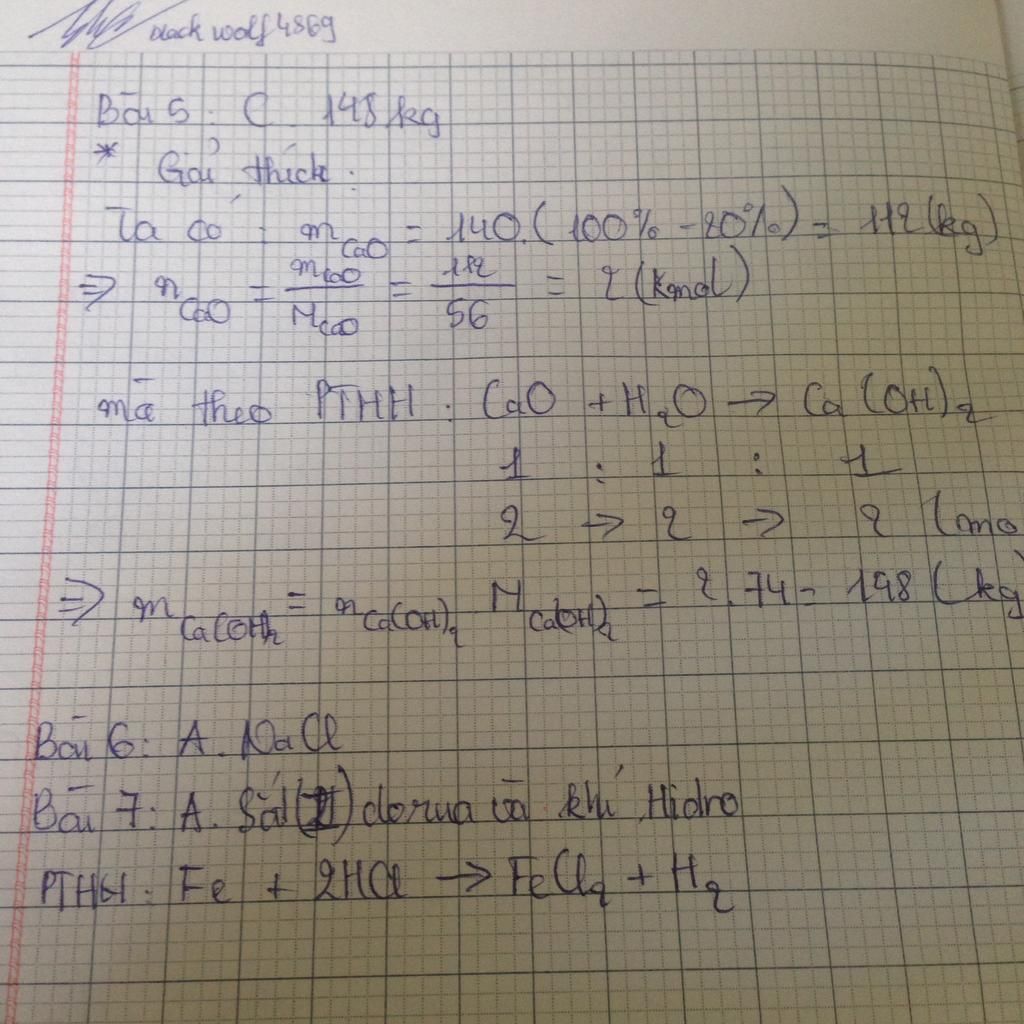 black wolf 4869
Bài 5: C. 148 kg
* Giải thích:
Ta có: mCaO = 140.(100% - 20%) = 112 (kg)
=> nCaO = mCaO/MCaO = 112/56 = 2 (kmol)
mà theo PTHH: CaO + H2O → Ca(OH)2
1 : 1 : 1
2 → 2 → 2 (mo
=> mCa(OH)2 = nCa(OH)2 . MCa(OH)2 = 2.74 = 148 (kg)
Bài 6: A. NaCl
Bài 7: A. Sắt(II) clorua và khí Hidro
PTHH: Fe + 2HCl → FeCl2 + H2